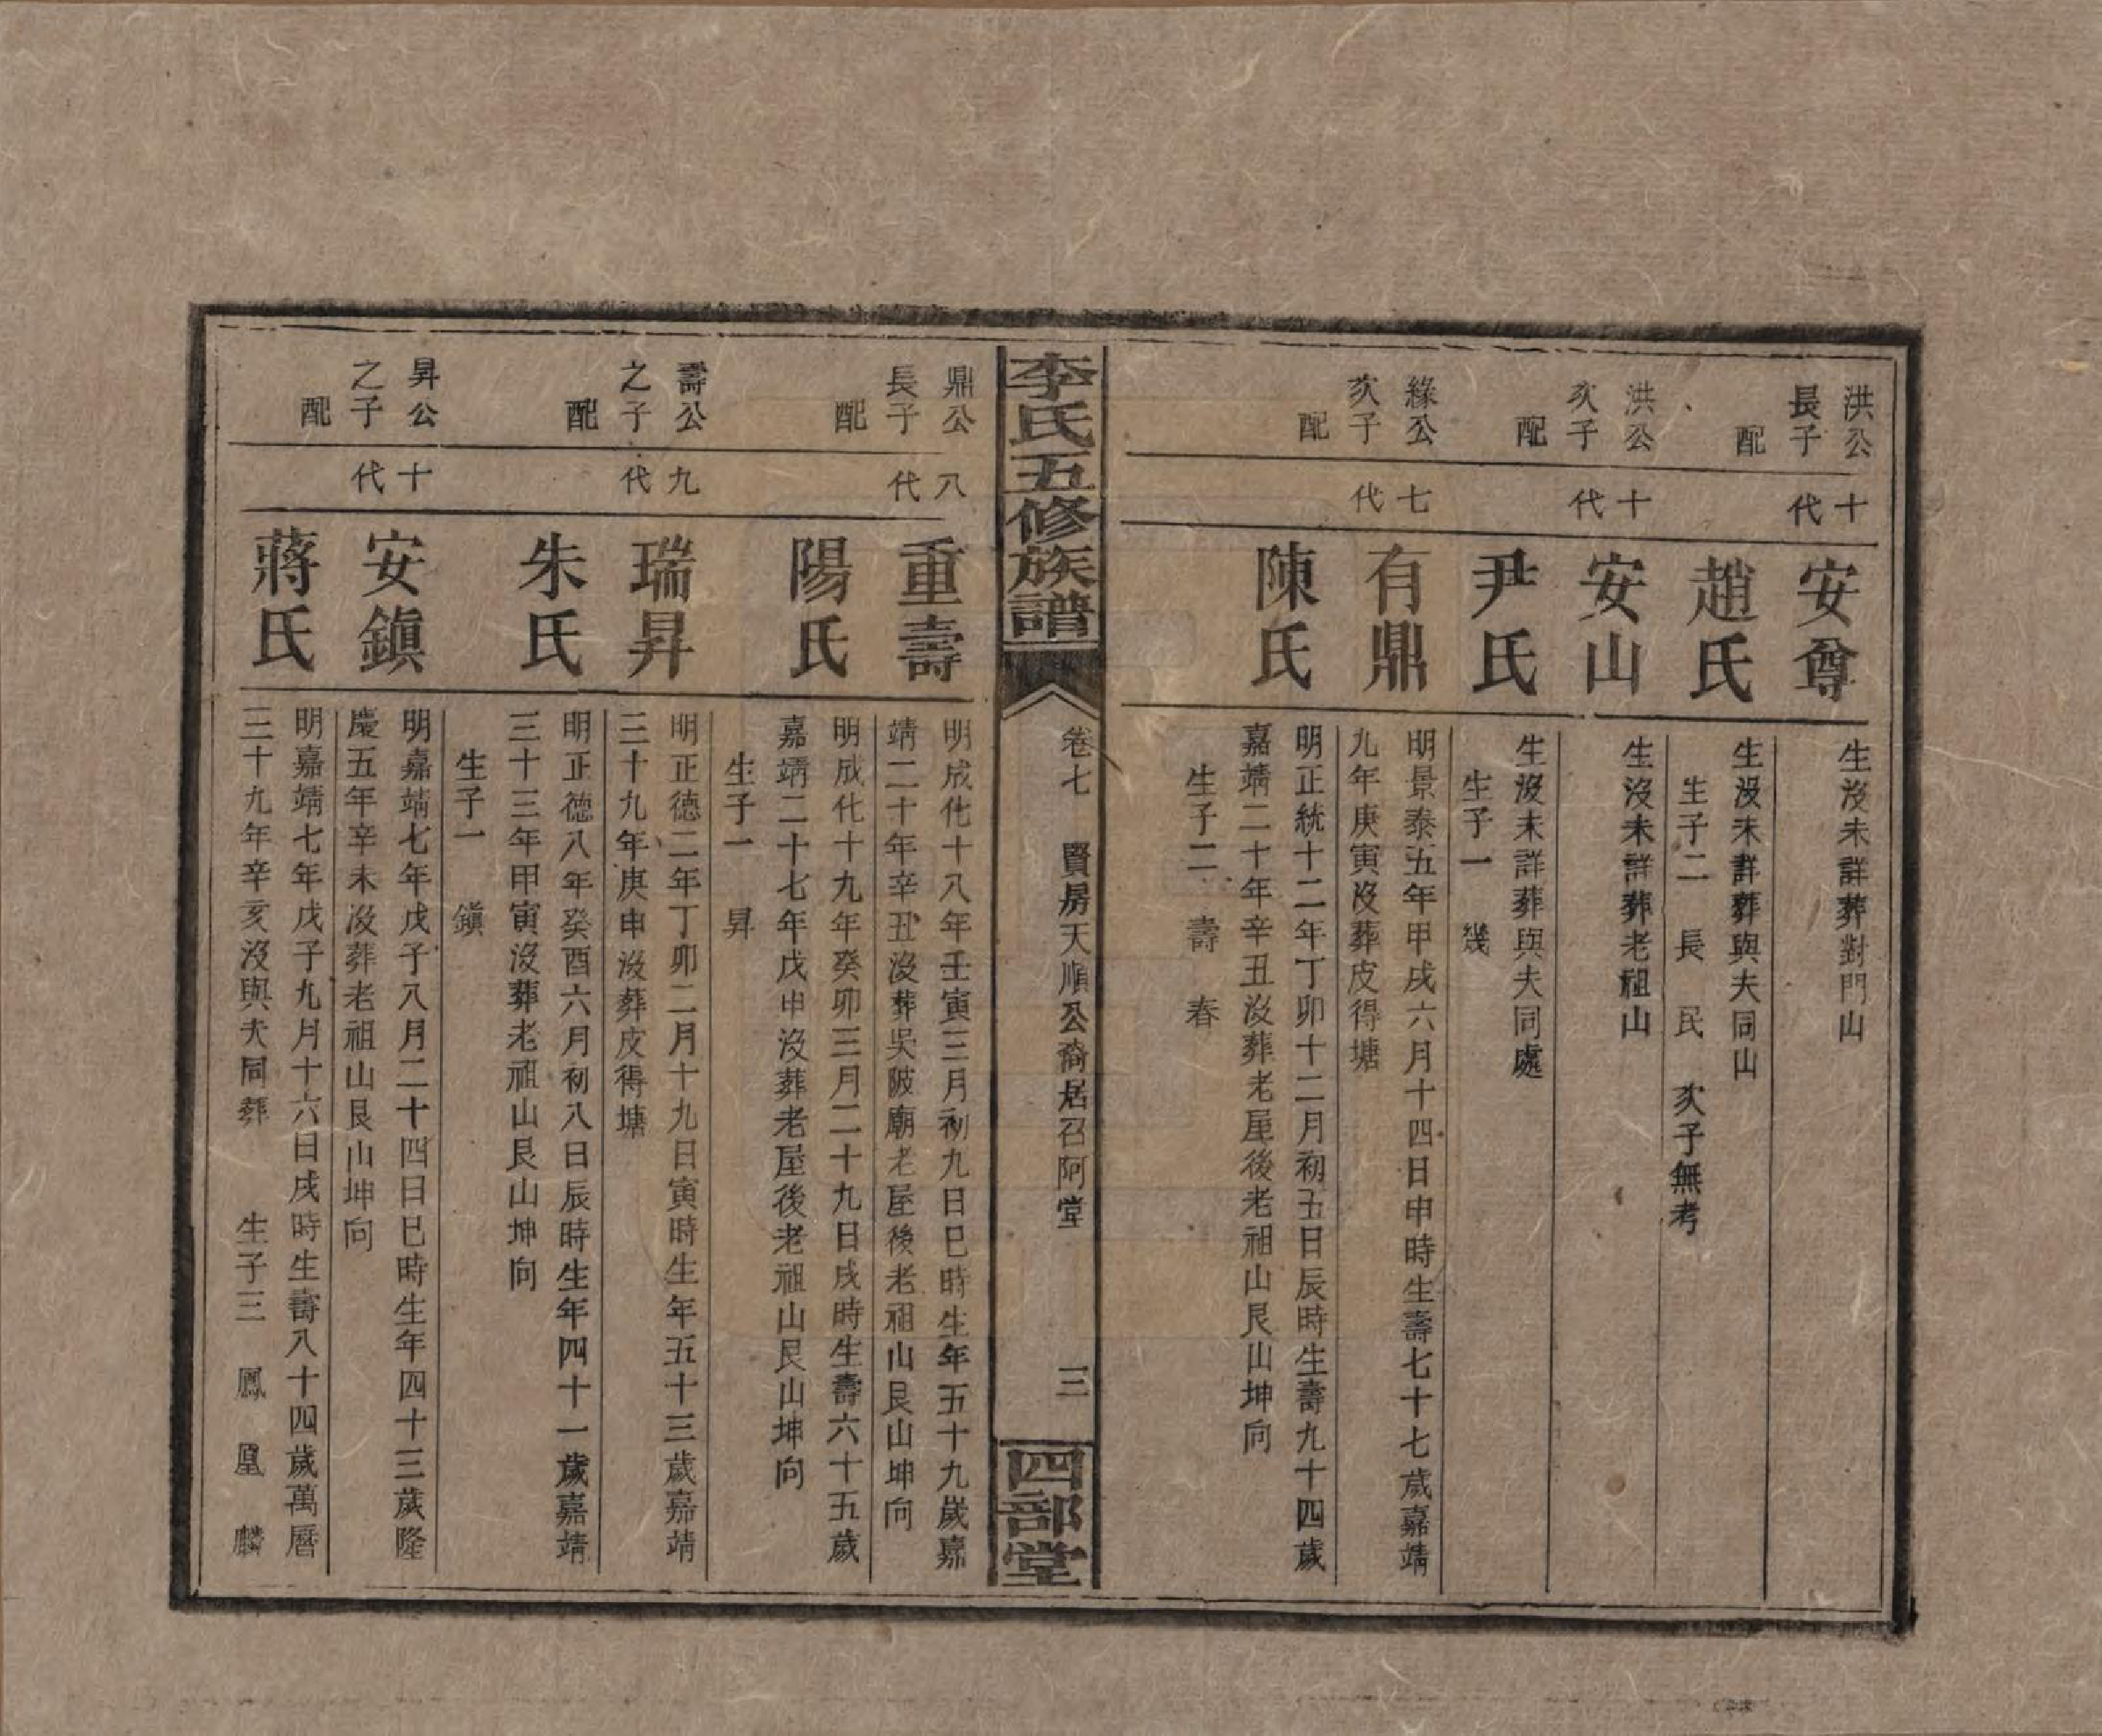 洪公
長子
十
代
安尊
生沒未詳葬對門山
配
趙氏
生沒未詳葬與夫同山
生子二 長 民 次子無考
洪公
次子
十
代
安山
生沒未詳葬老祖山
配
尹氏
生沒未詳葬與夫同處
生子一 幾
緣公
次子
七
代
有鼎
明景泰五年甲戌六月十四日申時生壽七十七歲嘉靖
九年庚寅沒葬皮得塘
配
陳氏
明正統十二年丁卯十二月初五日辰時生壽九十四歲
嘉靖二十年辛丑沒葬老屋後老祖山艮山坤向
生子二 壽 春
李氏五修族譜
卷七 賢房天順公裔居召阿堂
三
四部堂
鼎公
長子
八
代
重壽
明成化十八年壬寅三月初九日巳時生年五十九歲嘉
靖二十年辛丑沒葬吳陂廟老屋後老祖山艮山坤向
配
陽氏
明成化十九年癸卯三月二十九日戌時生壽六十五歲
嘉靖二十七年戊申沒葬老屋後老祖山艮山坤向
生子一 昇
壽公
之子
九
代
瑞昇
明正德二年丁卯二月十九日寅時生年五十三歲嘉靖
三十九年庚申沒葬皮得塘
配
朱氏
明正德八年癸酉六月初八日辰時生年四十一歲嘉靖
三十三年甲寅沒葬老祖山艮山坤向
生子一 鎭
昇公
之子
十
代
安鎭
明嘉靖七年戊子八月二十四日巳時生年四十三歲隆
慶五年辛未沒葬老祖山艮山坤向
配
蔣氏
明嘉靖七年戊子九月十六日戌時生壽八十四歲萬曆
三十九年辛亥沒與夫同葬 生子三 鳳 凰 麟